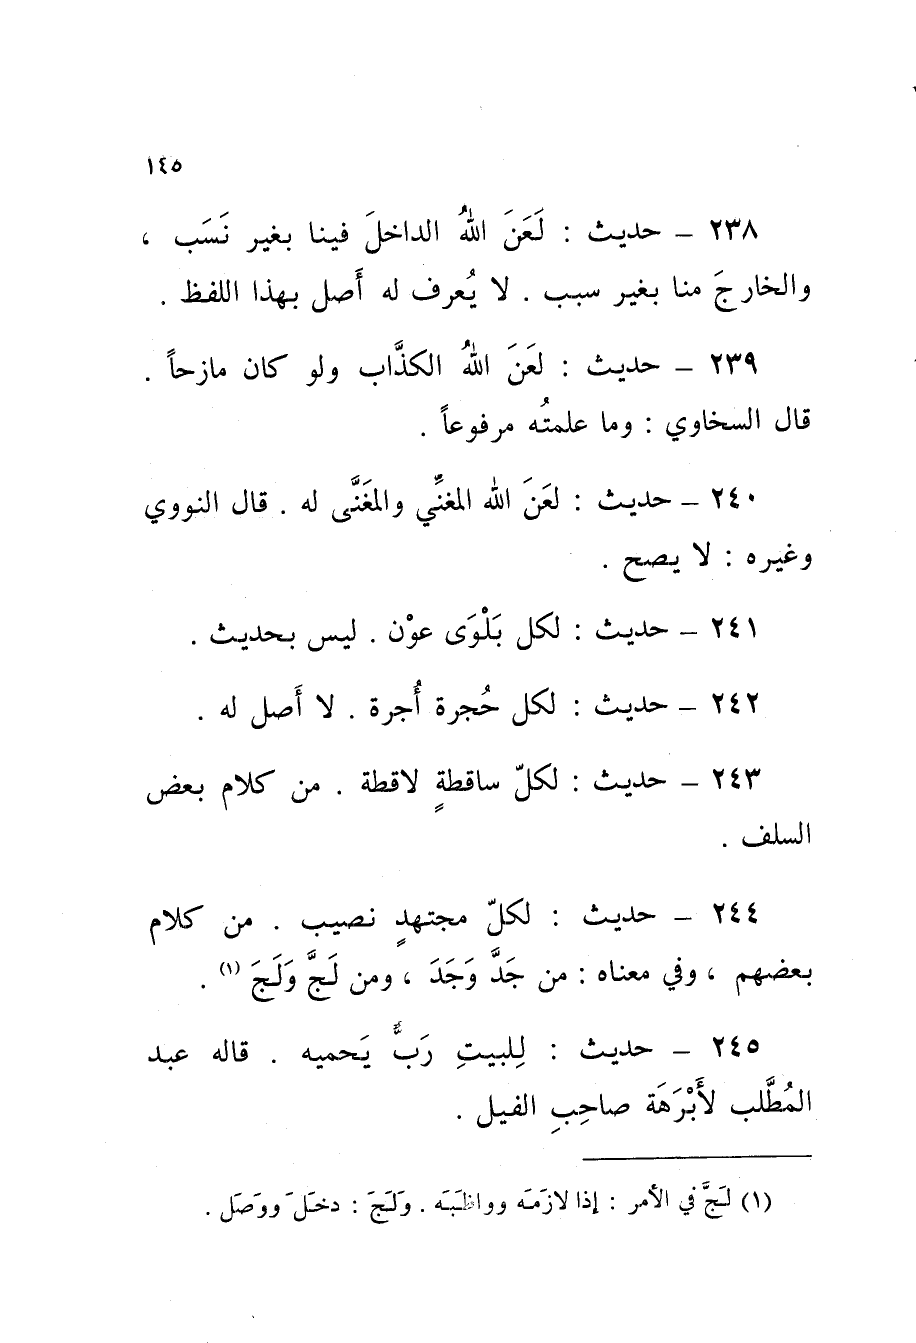 ١٤٥
٢٣٨ ــ حديث : لَعَنَ اللهُ الداخلَ فينا بغير نَسَب ،
والخارجَ منا بغير سبب . لا يُعرف له أَصل بهذا اللفظ .
٢٣٩ ــ حديث : لعَنَ اللهُ الكذَّاب ولو كان مازحاً .
قال السخاوي : وما علمتُه مرفوعاً .
٢٤٠ ــ حديث : لعَنَ الله المغنِّي والمغَنَّى له . قال النووي
وغيره : لا يصح .
٢٤١ ــ حديث : لكل بَلْوَى عوْن . ليس بحديث .
٢٤٢ ــ حديث : لكل حُجرة أُجرة . لا أَصل له .
٢٤٣ ــ حديث : لكلّ ساقطةٍ لاقطة . من كلام بعض
السلف .
٢٤٤ ــ حديث : لكلّ مجتهدٍ نصيب . من كلام
بعضهم ، وفي معناه : من جَدَّ وَجَدَ ، ومن لَجَّ وَلَجَ (١) .
٢٤٥ ــ حديث : لِلبيتِ رَبٌّ يَحميه . قاله عبد
المُطَّلب لأَبْرَهَة صاحِبِ الفيل .
(١) لَجَّ في الأمر : إذا لازَمَه وواظَبَه . وَلَجَ : دخَلَ ووَصَل .